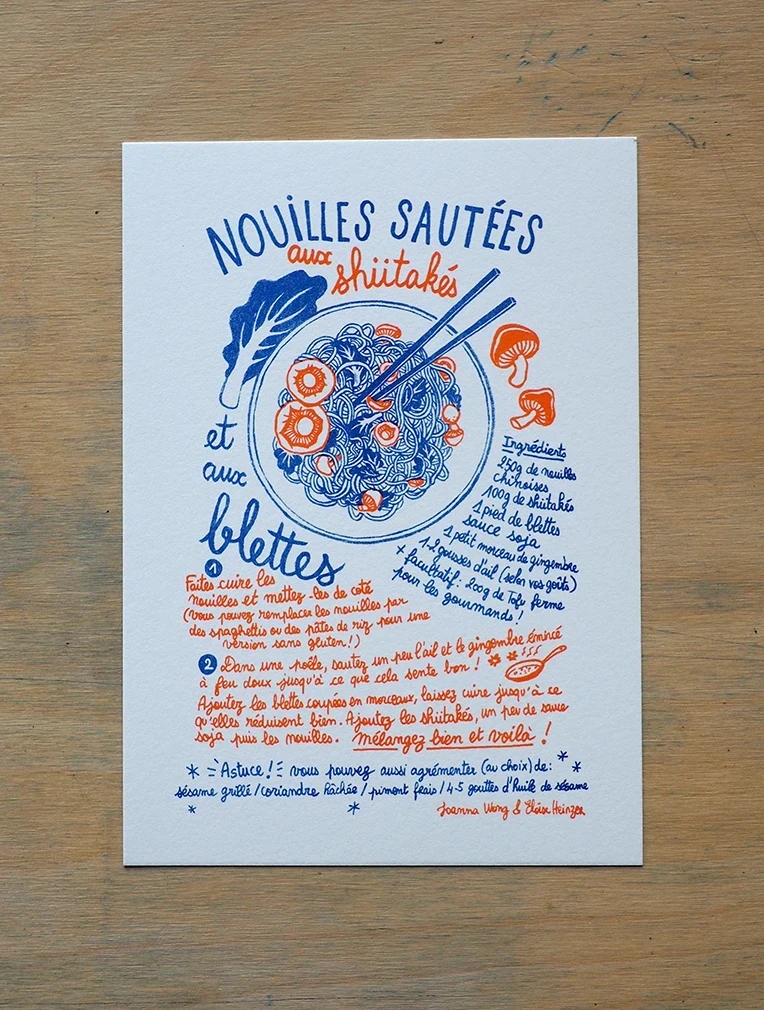 NOUiLLES SAUTÉES
aux shiitakés
et
aux
blettes
Ingrédients
250g de nouilles
chinoises
100g de shiitakés
1 pied de blettes
sauce soja
1 petit morceau de gingembre
1-2 gousses d'ail (selon vos goûts)
+ facultatif: 200g de Tofu ferme
pour les gourmands!
1
Faites cuire les
nouilles et mettez-les de coté
(vous pouvez remplacer les nouilles par
des spaghettis ou des pâtes de riz pour une
version sans gluten!)
2 Dans une poêle, sautez un peu l'ail et le gingembre émincé
à feu doux jusqu'à ce que cela sente bon!
Ajoutez les blettes coupées en morceaux, laissez cuire jusqu'à ce
qu'elles réduisent bien. Ajoutez les shiitakés, un peu de sauce
soja puis les nouilles. mélangez bien et voilà!
Astuce! vous pouvez aussi agrémenter (au choix) de:
sésame grillé/coriandre hâchée/piment frais/4-5 gouttes d'huile de sésame
Joanna Wong & Eloïse Heinzer